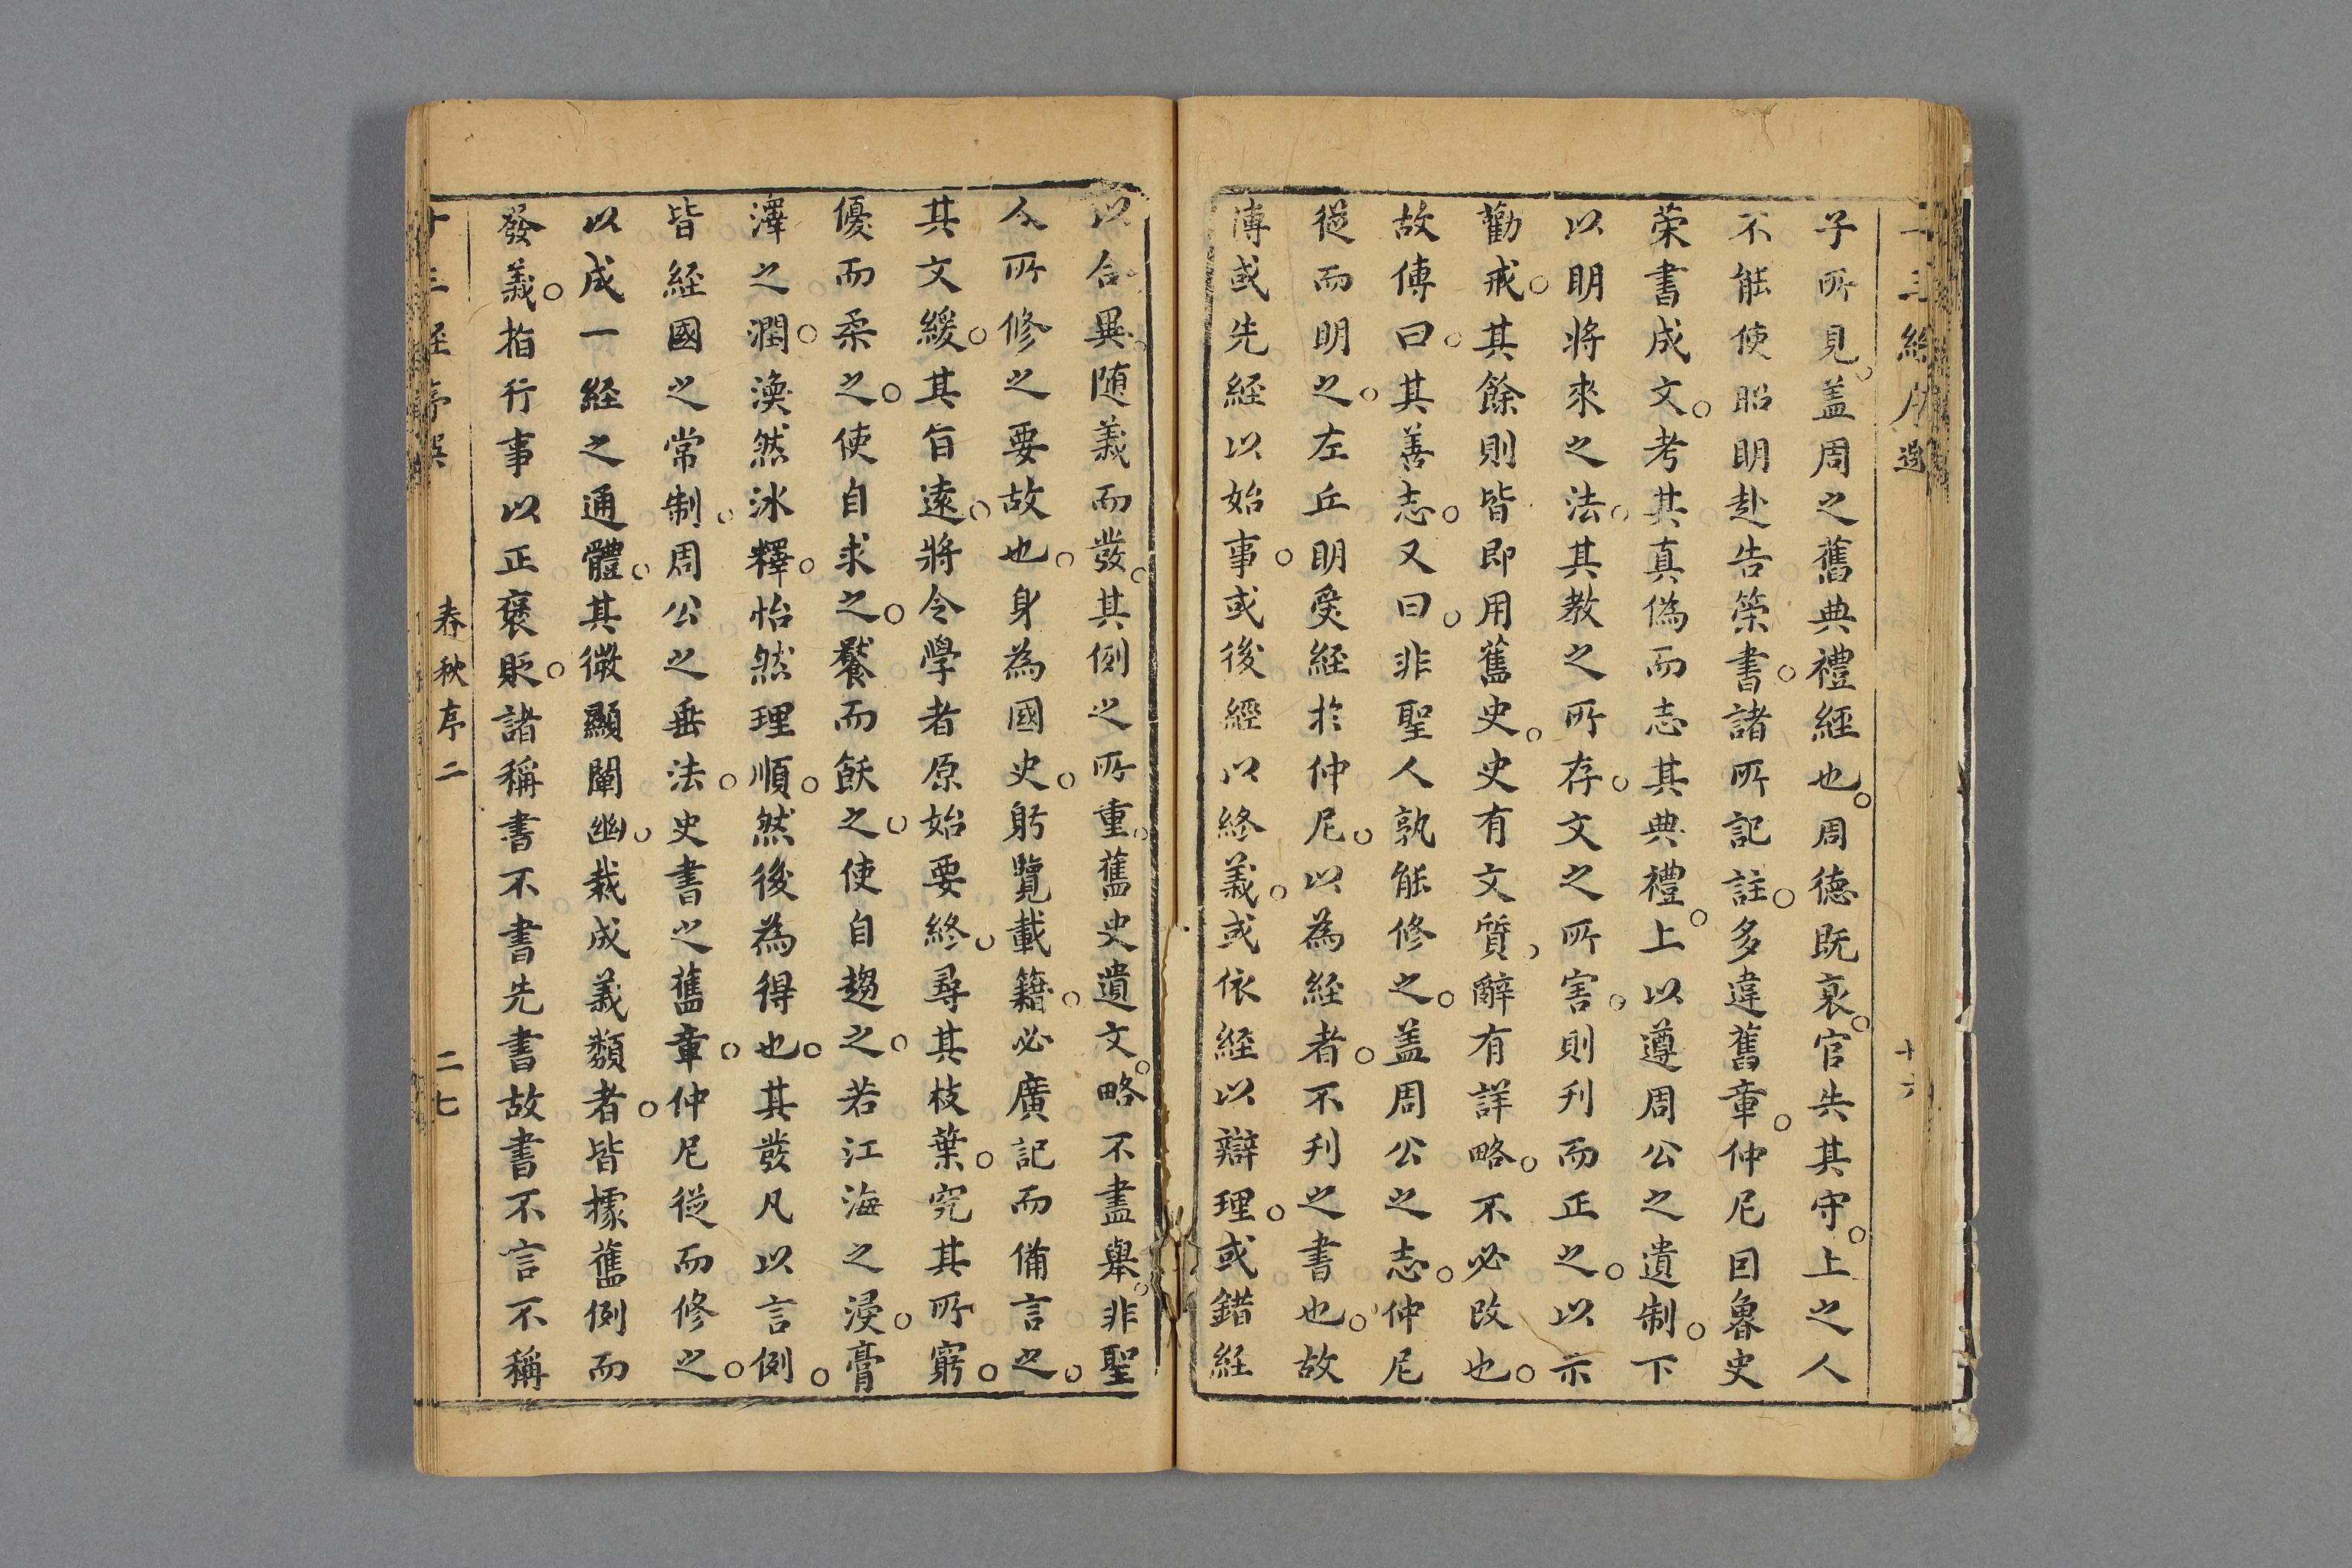 子所見。盖周之舊典禮經也。周德既衰。官失其守。上之人
不能使昭明赴告策書。諸所記註。多違舊章。仲尼因魯史
策書成文。考其真偽而志其典禮。上以遵周公之遺制。下
以明將來之法。其教之所存。文之所害。則刋而正之。以示
勸戒。其餘則皆即用舊史。史有文質。辭有詳略。不必改也。
故傳曰。其善志。又曰。非聖人孰能修之。盖周公之志。仲尼
從而明之。左丘明受經於仲尼。以為經者。不刋之書也。故
傳或先經以始事。或後經以終義。或依經以辯理。或錯經
以合異。随義而發。其例之所重。舊史遺文。略不盡舉。非聖
人所修之要故也。身為國史。躬覽載籍。必廣記而備言之。
其文緩。其旨遠。將令學者原始要終。尋其枝葉。究其所窮。
優而柔之。使自求之。饜而飫之。使自趨之。若江海之浸。膏
澤之潤。渙然冰釋。怡然理順。然後為得也。其發凡以言例。
皆經國之常制。周公之垂法。史書之舊章。仲尼從而修之。
以成一經之通體。其微顯闡幽。裁成義類者。皆據舊例而
發義。指行事以正褒貶。諸稱書不書先書故書不言不稱
春秋序二
二七